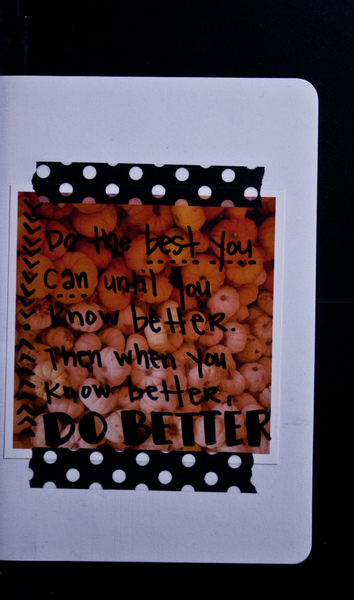 Do the best you
Can until you
Know better.
Then when you
Know better,
DO BETTER